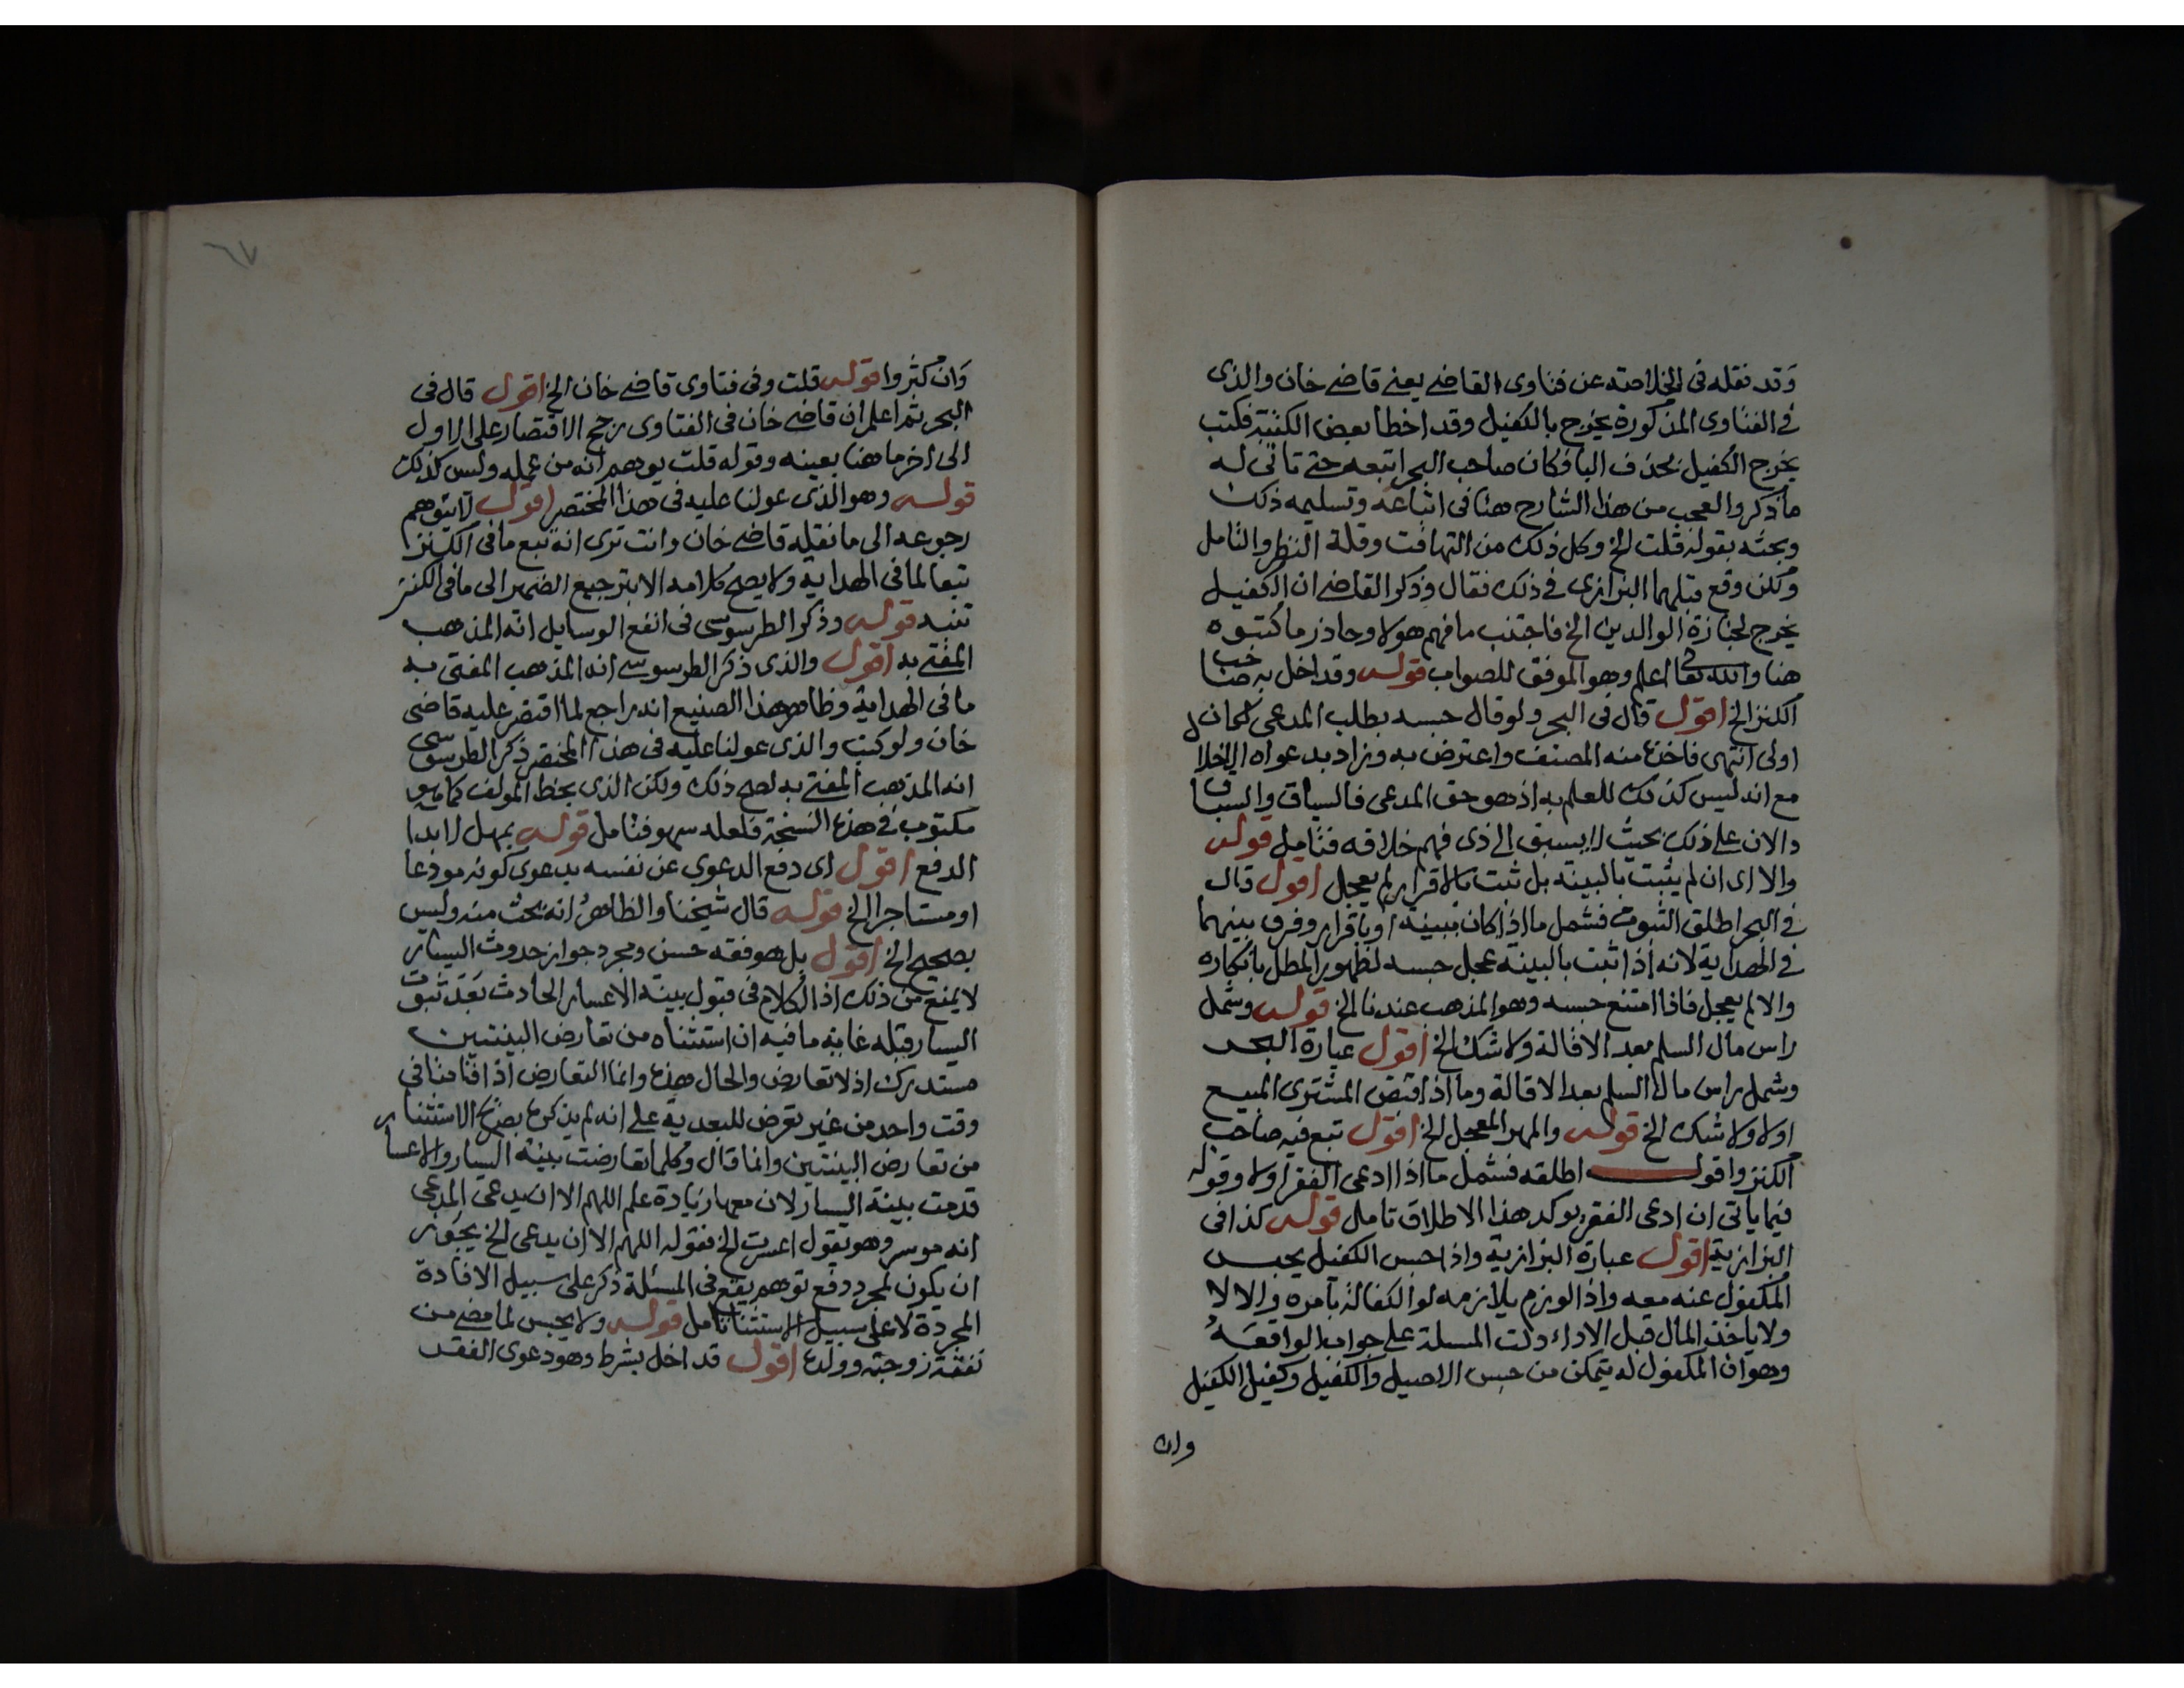 وقد نقله في الخلاصة عن فتاوى القاضي يعني قاضي خان والذي
في الفتاوى المذكورة يخرج بالكفيل وقد اخطا بعض الكتبة فكتب
يخرج الكفيل بحذف البا فكان صاحب البحر اتبعه حتى تاتى له
ما ذكر والعجب من هذا الشارح هنا في اتباعه وتسليمه ذلك
وبحثه بقوله قلت الخ وكل ذلك من التهافت وقلة النظر والتامل
ولكن وقع قبلهما البزازي في ذلك فقال وذكر القاضي ان الكفيل
يخرج لجنازة الوالدين الخ فاجتنب ما فهم هولا وحاذر ما كتبوه
هنا والله تعالى اعلم وهو الموفق للصواب قوله وقد اخل به صاحب
الكنز الخ اقول قال في البحر ولو قال حبسه بطلب المدعي لكان
اولى انتهى فاخذه منه المصنف واعترض به وزاد بدعواه الاخلا
مع انه ليس كذلك للعلم به اذ هو حق المدعي فالسياق والسباق
دالان على ذلك بحيث لا يسبق الى ذي فهم خلافه فتامل قوله
والا اى ان لم يثبت بالبينة بل ثبت بالاقرار لم يعجل اقول قال
في البحر اطلق الثبوت فشمل ما اذا كان ببينة او باقرار وفرق بينهما
في الهداية لانه اذا ثبت بالبينة عجل حبسه لظهور المطل بانكاره
والا لم يعجل فاذا امتنع حبسه وهو المذهب عندنا الخ قوله وشمل
راس مال السلم بعد الاقالة ولا شك الخ اقول عبارة البحر
وشمل راس مال السلم بعد الاقالة وما اذا قبض المشتري المبيع
اولا ولا شك الخ قوله والمهر المعجل الخ اقول تبع فيه صاحب
الكنز واقول اطلقه فشمل ما اذا ادعى الفقر اولا وقوله
فيما ياتي ان ادعى الفقر يوكد هذا الاطلاق تامل قوله كذا في
البزازية اقول عبارة البزازية واذا حبس الكفيل يحبس
المكفول عنه معه واذا لوزم يلازمه لو الكفالة بامره والا لا
ولا ياخذ المال قبل الاداء دلت المسلة على جواب الواقعة
وهو ان المكفول له يتمكن من حبس الاصيل والكفيل وكفيل الكفيل
وان
٦٧
وان كثروا قوله قلت وفي فتاوى قاضي خان الخ اقول قال في
البحر ثم اعلم ان قاضي خان في الفتاوى رجح الاقتصار على الاول
الى اخر ما هنا بعينه وقوله قلت يوهم انه من عمله وليس كذلك
قوله وهو الذي عولنا عليه في هذا المختصر اقول لا يتوهم
رجوعه الى ما نقله قاضي خان وانت ترى انه تبع ما في الكنز
تبعا لما في الهداية ولا يصح كلامه الا بترجيع الضمير الى ما في الكنز
تنبه قوله وذكر الطرسوسي في انفع الوسايل انه المذهب
المفتى به اقول والذي ذكر الطرسوسي انه المذهب المفتى به
ما في الهداية وظاهر هذا الصنيع انه راجع لما اقتصر عليه قاضي
خان ولو كتب والذي عولنا عليه في هذا المختصر ذكر الطرسوسي
انه المذهب المفتى به لصح ذلك ولكن الذي بخط المولف كما هو
مكتوب في هذه النسخة فلعله سهو فتامل قوله يمهل لابدا
الدفع اقول اى دفع الدعوى عن نفسه بدعوى كونه مودعا
او مستاجرا الخ قوله قال شيخنا والظاهر انه بحث منه وليس
بصحيح الخ اقول بل هو فقه حسن ومجرد جواز حدوث اليسار
لا يمنع من ذلك اذ الكلام في قبول بينة الاعسار الحادث بعد ثبوت
اليسار قبله غاية ما فيه ان استثناه من تعارض البينتين
مستدرك اذ لا تعارض والحال هذه وانما التعارض اذا اقامنا في
وقت واحد من غير تعرض للبعدية على انه لم يذكره بصريح الاستثنا
من تعارض البينتين وانما قال وكلما تعارضت بينة اليسار والاعسار
قدمت بينة اليسار لان معها زيادة علم اللهم الا ان يدعي المدعي
انه موسر وهو يقول اعسرت الخ فقوله اللهم الا ان يدعي الخ يجوز
ان يكون لمجرد دفع توهم يقع في المسئلة ذكر على سبيل الافادة
المجردة لا على سبيل الاستثنا تامل قوله ولا يحبس لما مضى من
نفقة زوجته وولده اقول قد اخل بشرط وهو دعوى الفقر